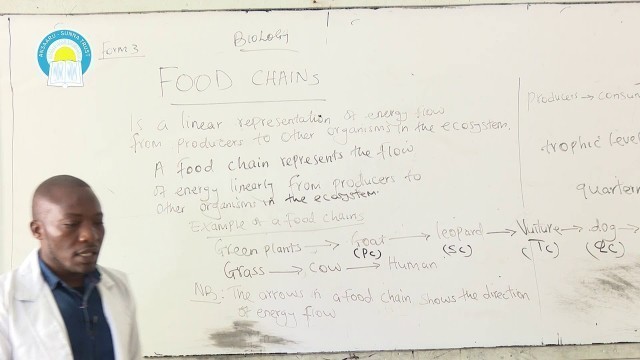 ANSAARU - SUNNA TRUST
Form 3
BIOLOGY
FOOD CHAINS
Is a linear representation of energy flow
from producers to other organisms in the ecosystem.
A food chain represents the flow
of energy linearly from producers to
other organisms in the ecosystem.
Example of a food chains
Green plants → Goat → leopard → Vulture → dog →
(PC) (SC) (TC) (QC)
Grass → cow → Human
NB: The arrows in a food chain shows the direction
of energy flow
Producers → consum
trophic leve
quartern